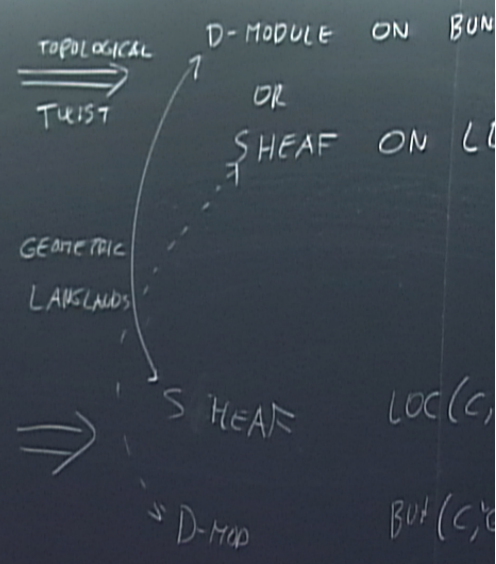 TOPOLOGICAL
TWIST
D-MODULE ON BUN
OR
SHEAF ON LO
GEOMETRIC
LANGLANDS
SHEAF LOC(C,
D-MOD BUN(C,G